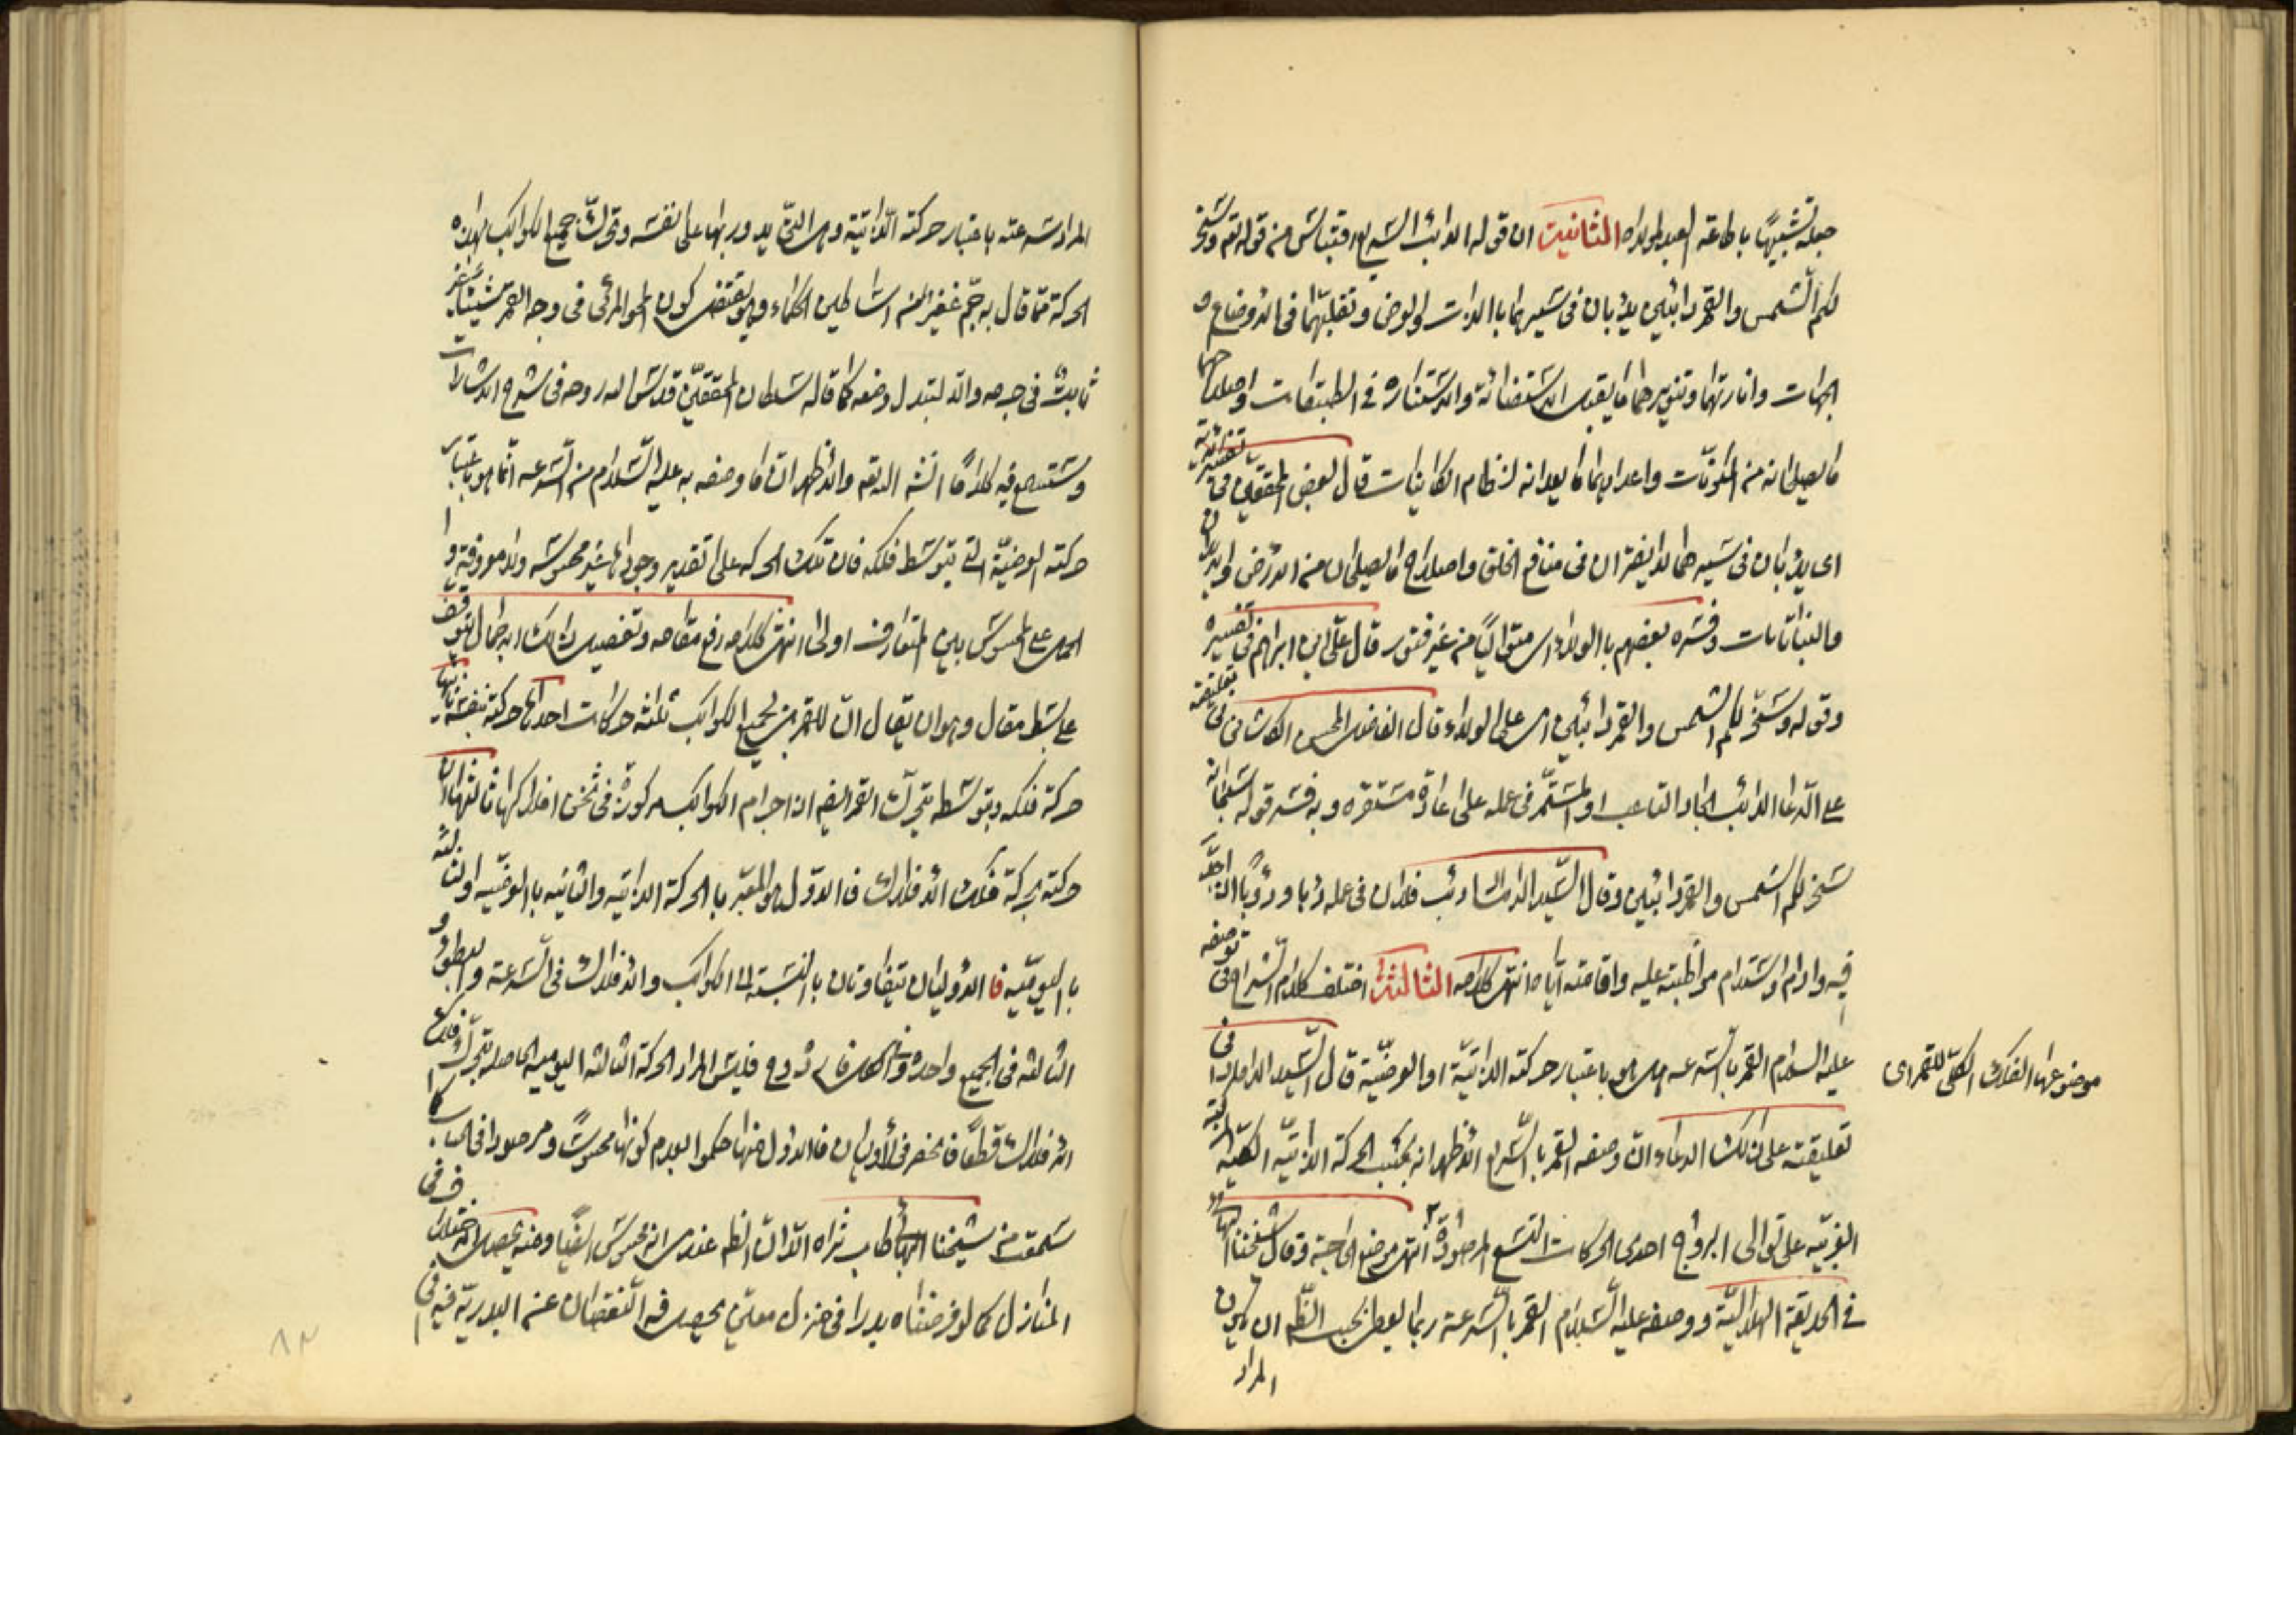 جعله تشبيهًا باطاعة العبد لمولاه الثانية ان قوله الدائب السريع اقتباس من قوله تعه وسخر
لكم الشمس والقمر دائبين يدئبان فى سيرهما بالذات او بالعرض وتقلبهما فى الاوضاع و
الجهات وانارتهما وتنويرهما ما يقبل الاستضائة والاستنارة فى الطبقات واصلاحهما
ما يصلحانه من المكونات واعدادهما ما يعدانه لنظام الكاينات قال بعض المحققين فى تفسير الآية
اى يدئبان فى سيرهما لا يفتران فى منافع الخلق واصلاح ما يصلحان من الارض والابدان
والنباتات وفسره بعضهم بالولاء اى متواليًا من غير فتور قال على ابن ابراهيم فى تفسيره
وقوله وسخر لكم الشمس والقمر دائبين اى على الولاء وقال الفاضل المحسن الكاشانى فى تعليقته
على الدعا الدائب الجاد التاعب او المستمر فى عمله على عادة مستقره وبه فسر قوله سبحانه
سخر لكم الشمس والقمر دائبين وقال السيد الداماد دئب فلان فى عمله دئبا ودؤبًا اذا جد
فيه وادام واستدام مواظبته عليه واقامته اياه انتهى كلامه الثالثة اختلف كلام الشراح فى توصيفه
عليه السلام القمر بالسرعه هل هو باعتبار حركته الذاتية او الوضعية قال السيد الداماد فى
تعليقته على ذلك الدعاء ان وصفه القمر بالسريع الاظهر انه بحسب الحركة الذاتية الكلية المركبة
موضوعها الفلك الكلى للقمر اى
الغربيه على توالى البروج احدى الحركات التسع المرصودة انتهى موضع الحاجة وقال شيخنا البهائى
فى الحديقة الهلالية ووصفه عليه السلام القمر بالسرعة ربما يعطى بحسب الظه ان يكون
المراد
المراد سرعته باعتبار حركته الذاتية وهى التى يدور بها على نفسه وتحرك جميع الكواكب بهذه
الحركة مما قال به جم غفير من اساطين الحكماء وهو يقتضى كون المحو المرئى فى وجه القمر شيئا غير
ثابت فى جرمه والا لتبدل وضعه كما قاله سلطان المحققين قدس الله روحه فى شرح الاشارات
وستسمع فيه كلامًا انشه الله تعه والاظهر ان ما وصفه به عليه السلام من السرعه انما هو باعتبار
حركته الوضعية التى بتوسط فلكه فان تلك الحركه على تقدير وجودها غير محسوسه ولا معروفة و
الحمل على المحسوس بين المتعارف اولى انتهى كلامه رفع مقامه وتفصيل ذلك الاجمال يتوقف
على بسط مقال وهو ان يقال ان للقمر بل لجميع الكواكب ثلثه حركات احدها حركته بنفسه ثانيها
حركة فلكه وبتوسطه يتحرك القمر ايضه اذ اجرام الكواكب مركوزة فى ثخن افلاكها ثالثها ان
حركته بحركة فلك الافلاك فالاول هو المعبر بالحركة الذاتيه والثانيه بالوضعيه والثالثه
باليوميه فالاوليان يتفاوتان بالنسبة الى الكواكب والافلاك فى السرعة والبطؤ و
الثالثه فى الجميع واحدة فليس المراد الحركة الثالثه اليوميه الحاصله بتحرك فلك
الافلاك قطعًا فانحصر فى الاوليان فالاول منها حكموا بعدم كونها محسوسًا ومرصودا كما
سمعت من شيخنا البهائى طاب ثراه الا ان الظه عندى انه محسوس ايضًا ومنه يحصل اختلاف فى
المنازل كما لو فرضناه بدرا فى منزل معين يحصل فيه النقصان عن البدرية فيه فى